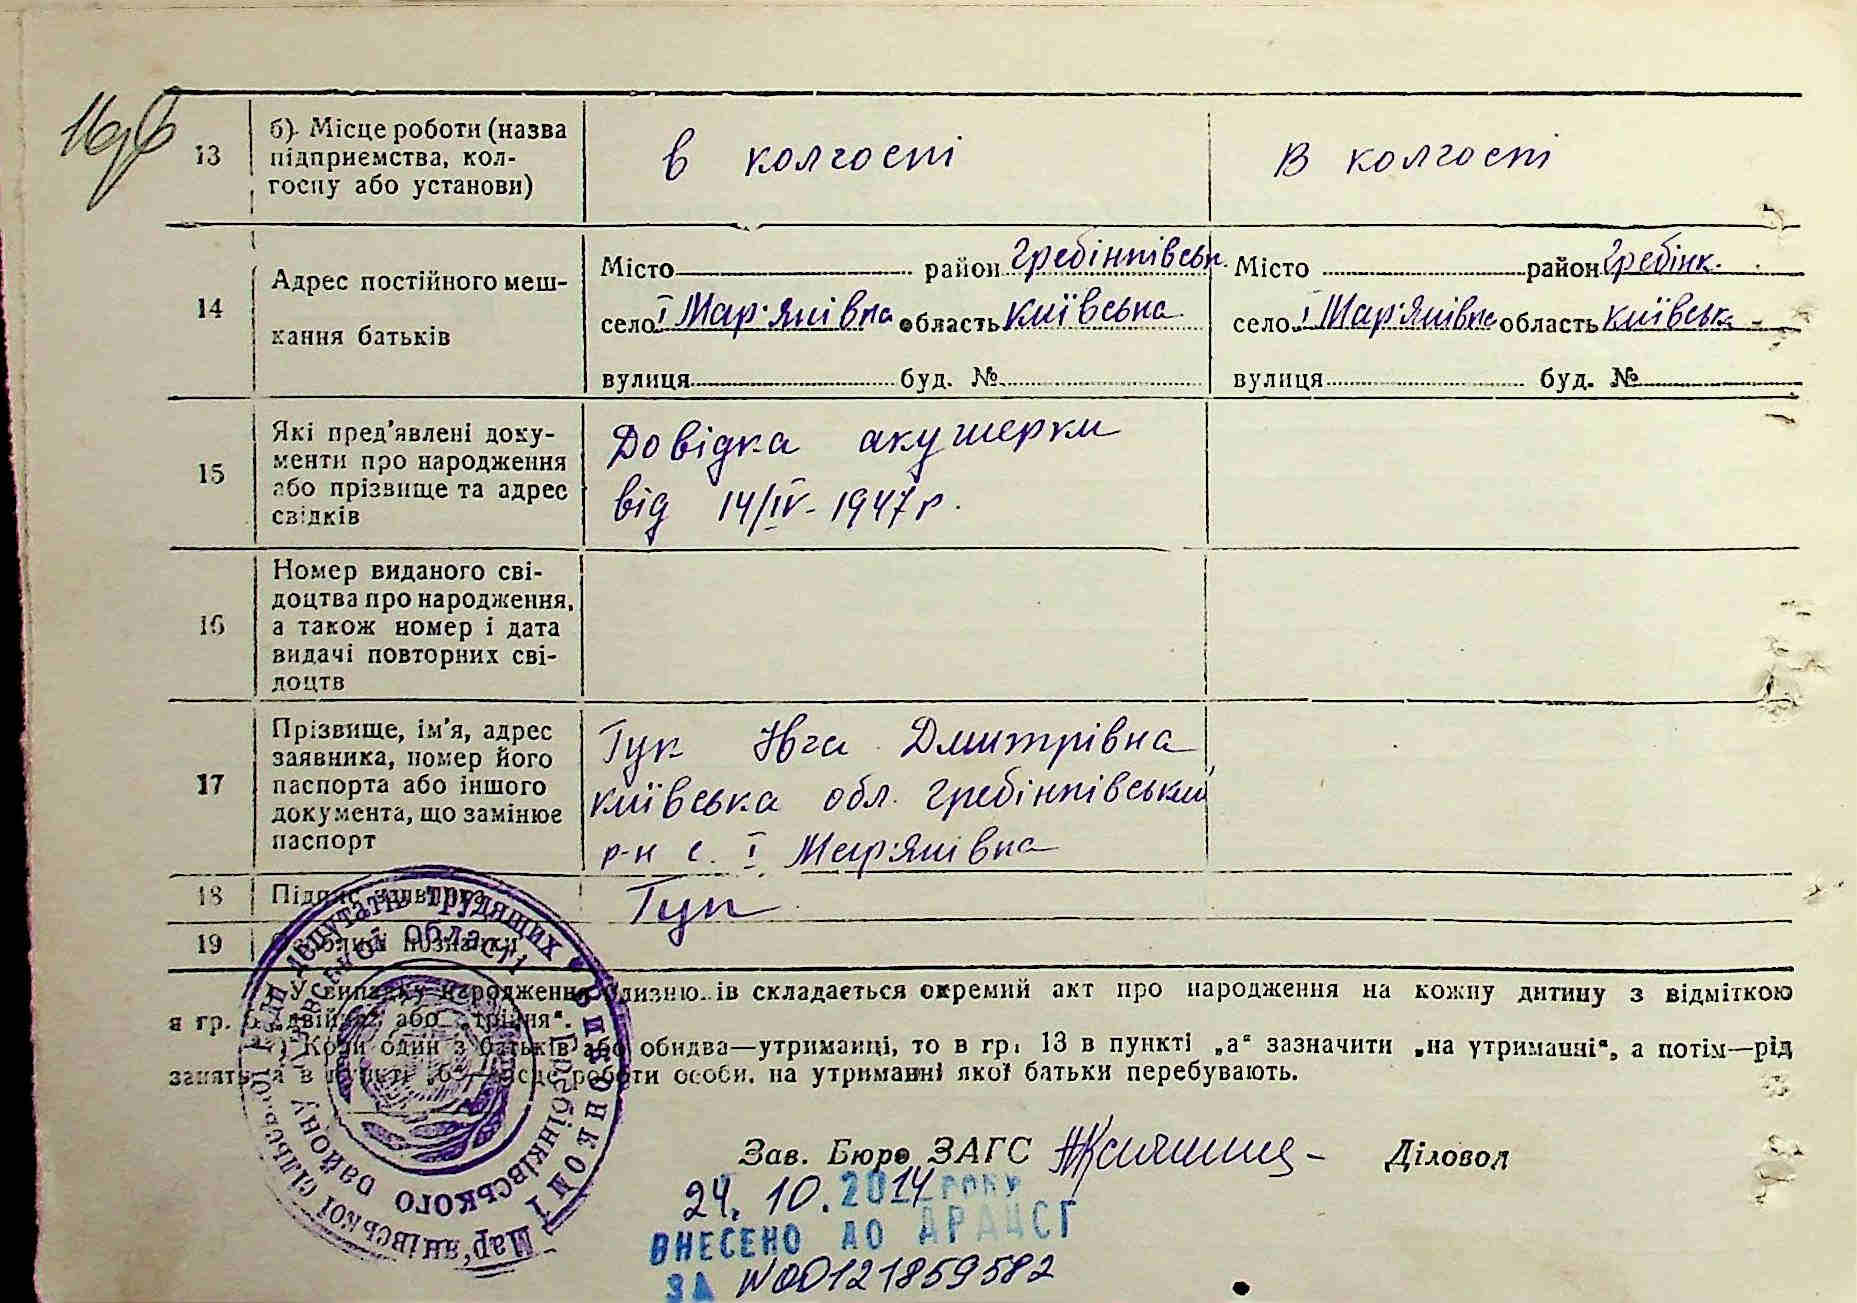 13 б). Місце роботи (назва підприємства, колгоспу або установи)
в колгоспі
В колгоспі
14 Адрес постійного мешкання батьків
Місто район Гребінківськ.
село І Мар'янівка область Київська
вулиця буд. №
Місто район Гребінк.
село І Мар'янівка область Київськ
вулиця буд. №
15 Які пред'явлені документи про народження або прізвище та адрес свідків
Довідка акушерки
від 14/IV-1947 р.
16 Номер виданого свідоцтва про народження, а також номер і дата видачі повторних свідоцтв
17 Прізвище, ім'я, адрес заявника, номер його паспорта або іншого документа, що замінює паспорт
Гук Дмитрівна
Київська обл. Гребінківський
р-н с. І Мар'янівка
18 Підпис заявника
Гук
19 позначки
У випадку народження близнюків складається окремий акт про народження на кожну дитину з відміткою
в гр. "двійня" або "трійня".
Коли один з батьків або обидва—утриманці, то в гр. 13 в пункті „а" зазначити „на утриманні", а потім—рід
занять, а в пункті „б"—місце роботи особи, на утриманні якої батьки перебувають.
Виконком Мар'янівської сільської Ради депутатів трудящих
Гребінківського району Київської області
Зав. Бюро ЗАГС Діловод
24. 10. 2014 РОКУ
ВНЕСЕНО ДО ДРАЦСГ
ЗА №00121859582